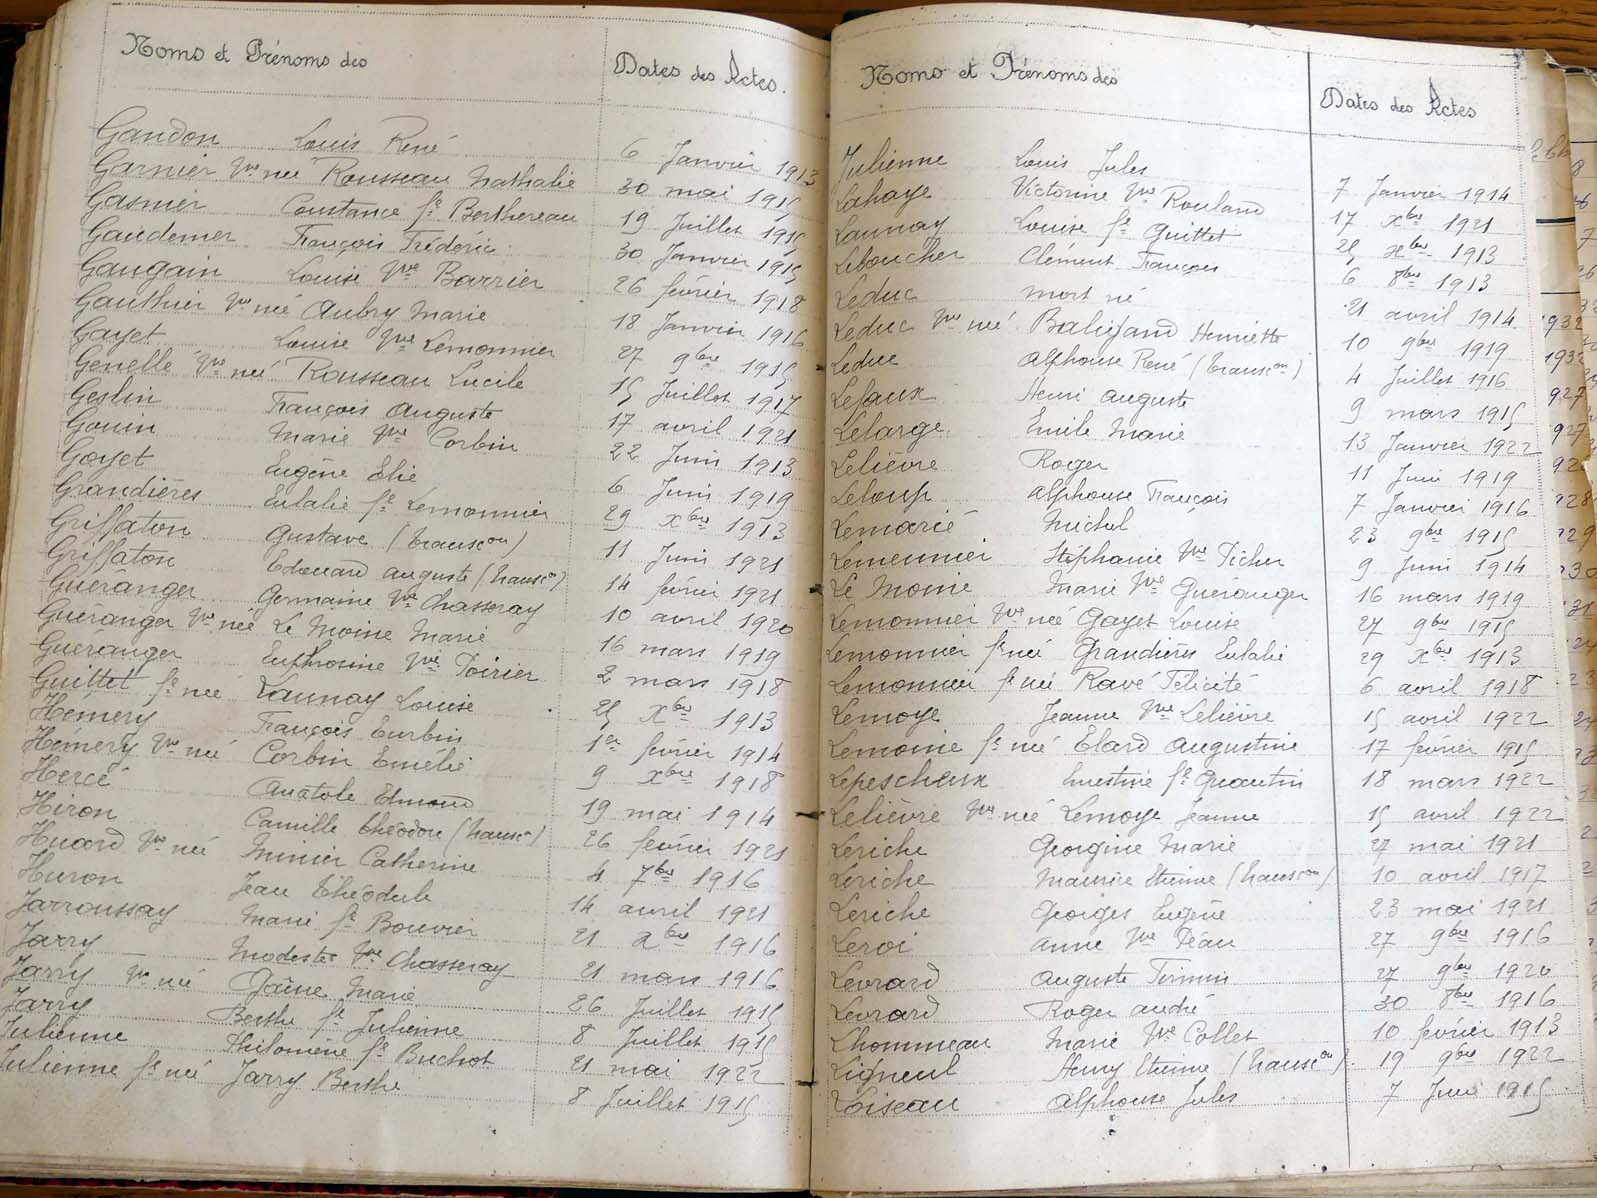 Noms et Prénoms des Dates des Actes.
Gandon Louis René 6 Janvier 1913
Garnier Vve née Rousseau Nathalie 30 mai 1915
Gasnier Constance fe Berthereau 19 Juillet 1915
Gaudemer François Frédéric 30 Janvier 1915
Gaugain Louise Vve Barrier 26 février 1918
Gauthier Vve née Aubry Marie 18 Janvier 1916
Gayet Louise Vve Lemonnier 27 9bre 1915
Genelle Vve née Rousseau Lucile 15 Juillet 1917
Geslin François Auguste 17 avril 1921
Gouin Marie Vve Corbin 22 Juin 1913
Goyet Eugène Elie 6 Juin 1919
Grandières Eulalie fe Lemonnier 29 Xbre 1913
Griffaton Gustave (transcon) 11 Juin 1921
Griffaton Edouard Auguste (transcon) 14 février 1921
Guéranger Germaine Vve Chasseray 10 avril 1920
Guéranger Vve née Le Moine Marie 16 mars 1919
Guéranger Euphrosine Vve Poirier 2 mars 1918
Guittet fe née Launay Louise 25 Xbre 1913
Hémery François Eurbin 1er février 1914
Hémery Vve née Corbin Emélie 9 Xbre 1918
Hercé Anatole Edmond 19 mai 1914
Hiron Camille Théodore (transcon) 26 février 1921
Huard Vve née Minier Catherine 4 7bre 1916
Huron Jean Théodule 14 avril 1921
Jarroussay Marie fe Bouvier 21 Xbre 1916
Jarry Modeste Vve Chasseray 21 mars 1916
Jarry Vve née Marie 26 Juillet 1915
Jarry Berthe fe Julienne 8 Juillet 1915
Julienne Philomène fe Buchot 21 mai 1922
Julienne fe née Jarry Berthe 8 Juillet 1915
Noms et Prénoms des Dates des Actes
Julienne Louis Jules 7 Janvier 1914
Lahaye Victorine Vve Rouland 17 Xbre 1921
Launay Louise fe Guittet 25 Xbre 1913
Leboucher Clément François 6 8bre 1913
Leduc mort né 21 avril 1914
Leduc Vve née Henriette 10 9bre 1919
Leduc Alphonse René (transcon) 4 Juillet 1916
Lefaux Henri Auguste 9 mars 1915
Lelarge Emile Marie 13 Janvier 1922
Lelièvre Roger 11 Juin 1919
Leloup Alphonse François 7 Janvier 1916
Lemarié Michel 23 9bre 1915
Lemeunier Stéphanie Vve Picher 9 Juin 1914
Le Moine Marie Vve Guéranger 16 mars 1919
Lemonnier Vve née Gayet Louise 27 9bre 1915
Lemonnier fe née Grandières Eulalie 29 Xbre 1913
Lemonnier fe née Ravé Félicité 6 avril 1918
Lemoye Jeanne Vve Lelièvre 15 avril 1922
Lemoine fe née Elard Augustine 17 février 1915
Lepescheux Ernestine fe Quantin 18 mars 1922
Lelièvre Vve née Lemoye Jeanne 15 avril 1922
Leriche Georgine Marie 27 mai 1921
Leriche Maurice Etienne (transcon) 10 avril 1917
Leriche Georges Eugène 23 mai 1921
Leroi Anne Vve Péan 27 9bre 1916
Levrard Auguste Firmin 27 9bre 1920
Levrard Roger André 30 8bre 1916
Lhommeau Marie Vve Collet 10 février 1913
Ligneul Henry Etienne (transcon) 19 9bre 1922
Loiseau Alphonse Jules 7 Juin 1915